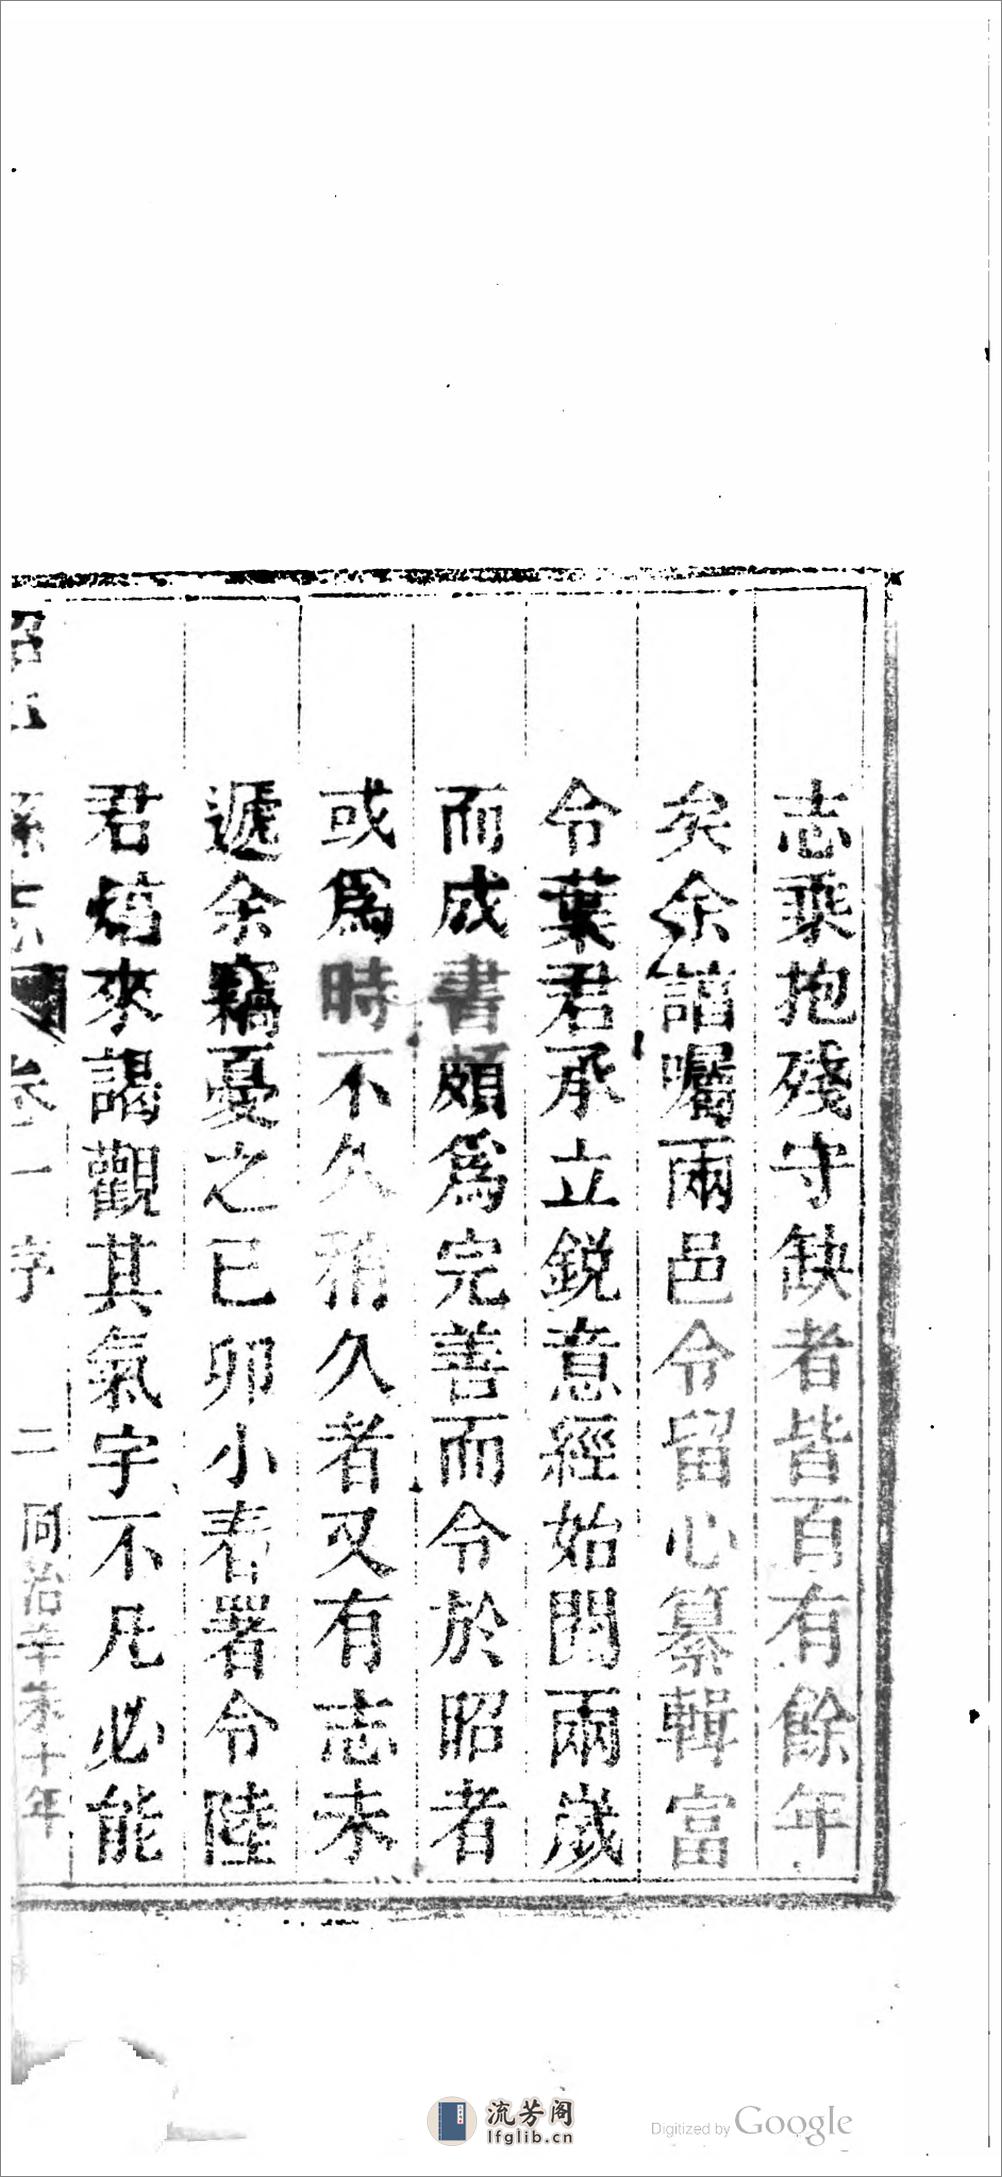 志乘抱殘守缺者皆百有餘年
矣余諳囑兩邑令留心纂輯富
令葉君承立銳意經始閱兩歲
而成書頗爲完善而令於昭者
或爲時不久稍久者又有志未
遞余竊憂之已卯小春署令陸
君 來謁觀其氣宇不凡必能
昭 縣志 卷一 序 二 同治辛未十年
流芳阁
lfglib.cn
Digitized by Google